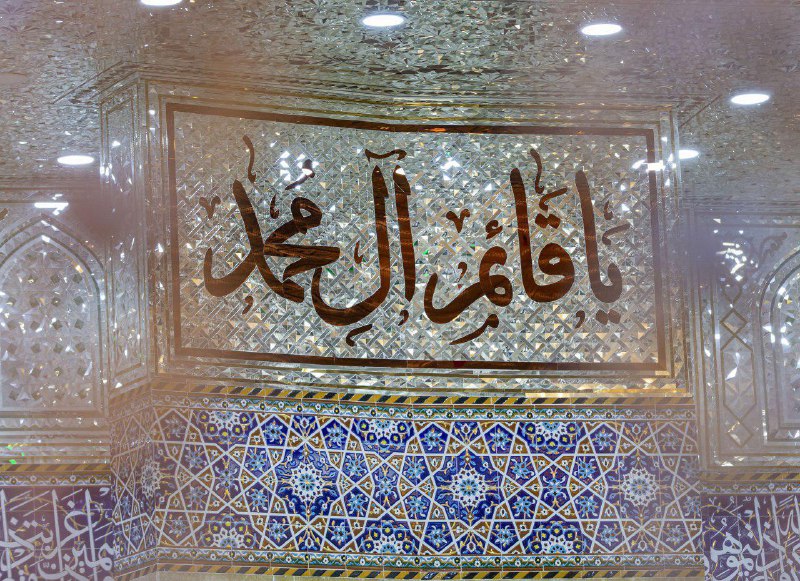 يا قائم آل محمد